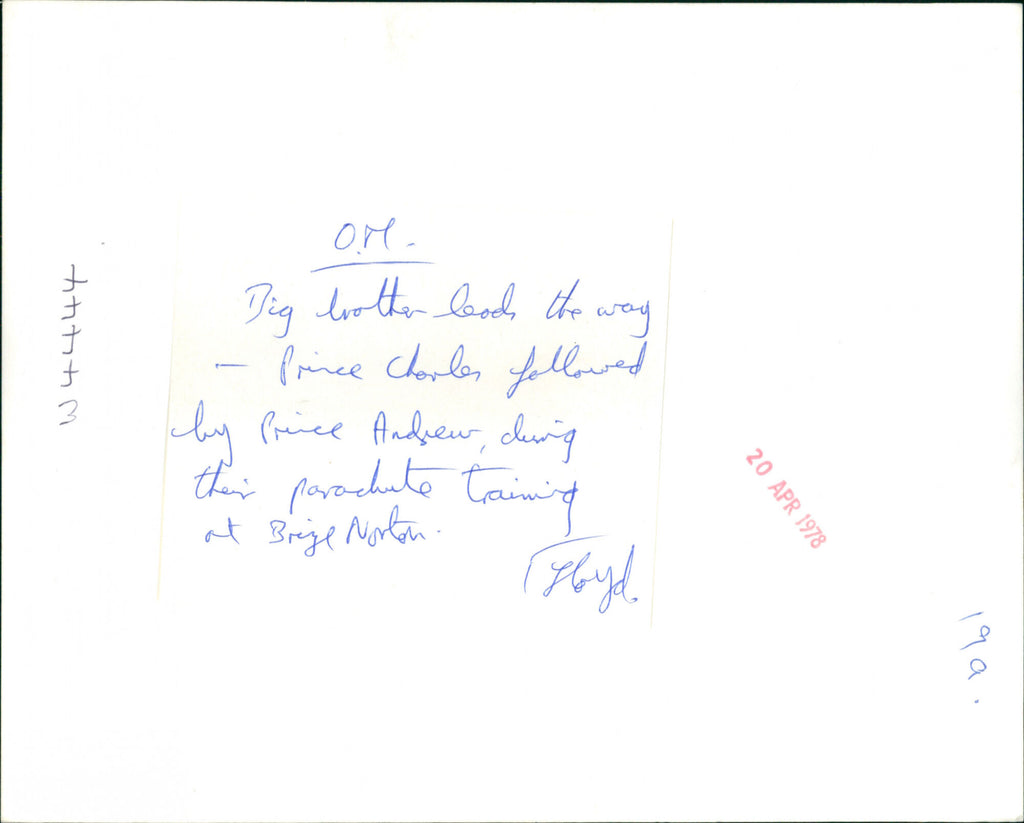 O.M.
Big brother leads the way
— Prince Charles followed
by Prince Andrew, during
their parachute training
at Brize Norton.
Floyd.
34444
20 APR 1978
19a.